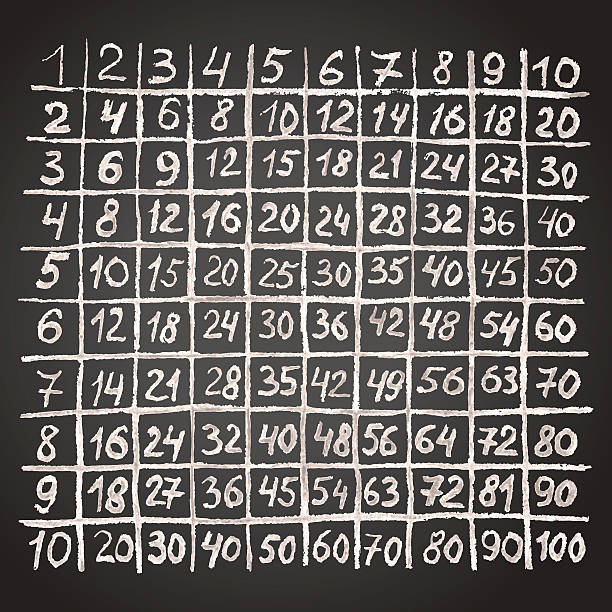 1 2 3 4 5 6 7 8 9 10
2 4 6 8 10 12 14 16 18 20
3 6 9 12 15 18 21 24 27 30
4 8 12 16 20 24 28 32 36 40
5 10 15 20 25 30 35 40 45 50
6 12 18 24 30 36 42 48 54 60
7 14 21 28 35 42 49 56 63 70
8 16 24 32 40 48 56 64 72 80
9 18 27 36 45 54 63 72 81 90
10 20 30 40 50 60 70 80 90 100